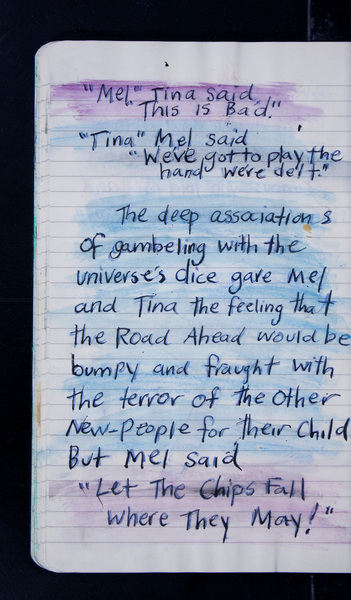 "Mel" Tina said,
"This is Bad."
"Tina" Mel said
"We've got to play the
hand we're delt."
The deep associations
of gambeling with the
universe's dice gave Mel
and Tina the feeling that
the Road Ahead would be
bumpy and fraught with
the terror of the Other
New-People for their Child
But Mel said
"Let The Chips Fall
where They May!"